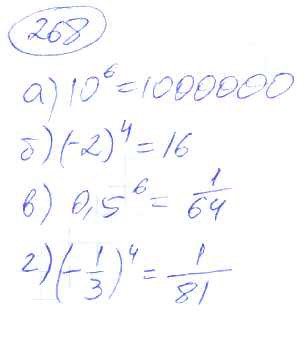 268
а) 10⁶ = 1000000
б) (-2)⁴ = 16
в) 0,5⁶ = 1/64
г) (-1/3)⁴ = 1/81